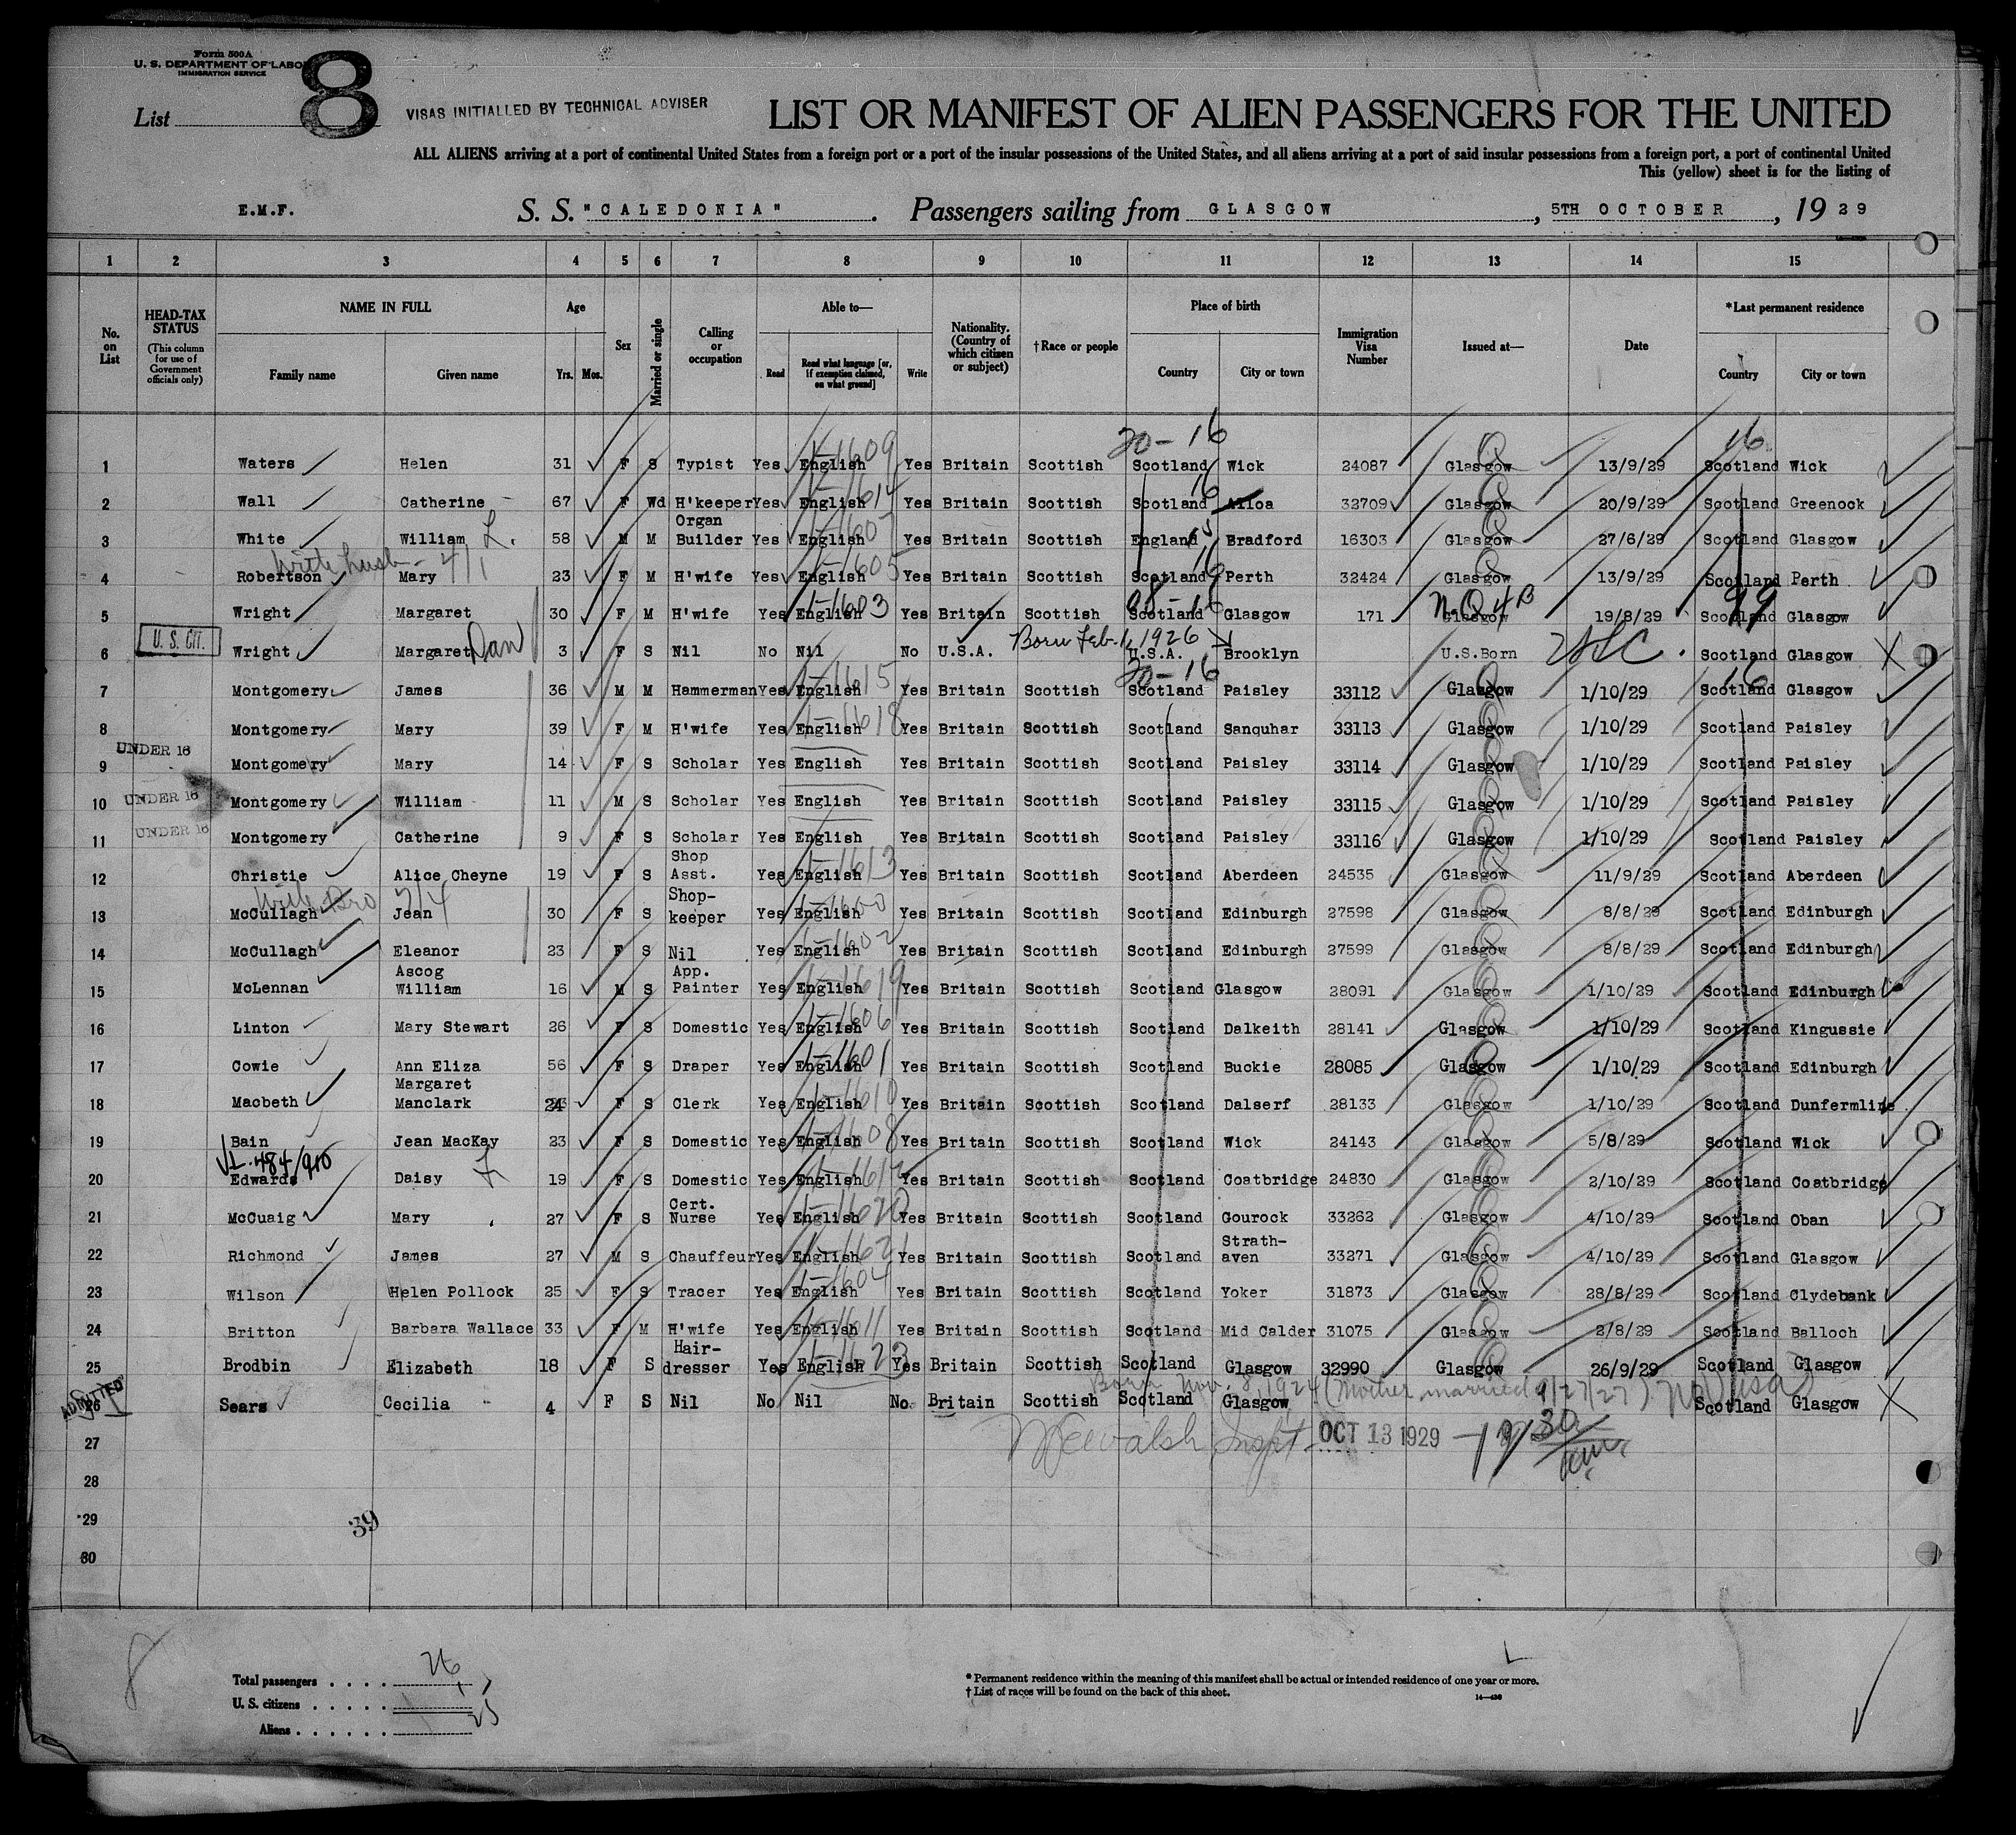 Form 500A
U. S. DEPARTMENT OF LABOR
IMMIGRATION SERVICE
List 8
VISAS INITIALLED BY TECHNICAL ADVISER
LIST OR MANIFEST OF ALIEN PASSENGERS FOR THE UNITED
ALL ALIENS arriving at a port of continental United States from a foreign port or a port of the insular possessions of the United States, and all aliens arriving at a port of said insular possessions from a foreign port, a port of continental United
This (yellow) sheet is for the listing of
E.M.F. S. S. "CALEDONIA". Passengers sailing from GLASGOW, 5TH OCTOBER, 1929
1 2 3 4 5 6 7 8 9 10 11 12 13 14 15
No. on List HEAD-TAX STATUS (This column for use of Government officials only) NAME IN FULL Family name Given name Age Yrs. Mos. Sex Married or single Calling or occupation Able to— Read Read what language [or, if exemption claimed, on what ground] Write Nationality. (Country of which citizen or subject) †Race or people Place of birth Country City or town Immigration Visa Number Issued at— Date *Last permanent residence Country City or town
20-16 16
1 Waters Helen 31 F S Typist Yes English 1-1609 Yes Britain Scottish Scotland Wick 24087 Glasgow 13/9/29 Scotland Wick
2 Wall Catherine 67 F Wd H'keeper Yes English 1-1614 Yes Britain Scottish Scotland 16 Alloa 32709 Glasgow 20/9/29 Scotland Greenook
3 White William L. 58 M M Organ Builder Yes English 1-1607 Yes Britain Scottish England Bradford 16303 Glasgow 27/6/29 Scotland Glasgow
with husb- 4/1
4 Robertson Mary 23 F M H'wife Yes English 1-1605 Yes Britain Scottish Scotland 16 Perth 32424 Glasgow 13/9/29 Scotland Perth
5 Wright Margaret 30 F M H'wife Yes English 1-1603 Yes Britain Scottish Scotland Glasgow 171 N.Q 4B Glasgow 19/8/29 Scotland 99 Glasgow
6 U. S. CIT. Wright Margaret Dan 3 F S Nil No Nil No U.S.A. Born Feb. 1926 U.S.A. Brooklyn U.S.Born Scotland Glasgow
20-16 16
7 Montgomery James 36 M M Hammerman Yes English 1-1615 Yes Britain Scottish Scotland Paisley 33112 Glasgow 1/10/29 Scotland Glasgow
8 Montgomery Mary 39 F M H'wife Yes English 1-1618 Yes Britain Scottish Scotland Sanquhar 33113 Glasgow 1/10/29 Scotland Paisley
UNDER 16
9 Montgomery Mary 14 F S Scholar Yes English Yes Britain Scottish Scotland Paisley 33114 Glasgow 1/10/29 Scotland Paisley
10 UNDER 16 Montgomery William 11 M S Scholar Yes English Yes Britain Scottish Scotland Paisley 33115 Glasgow 1/10/29 Scotland Paisley
11 UNDER 16 Montgomery Catherine 9 F S Scholar Yes English Yes Britain Scottish Scotland Paisley 33116 Glasgow 1/10/29 Scotland Paisley
12 Christie Alice Cheyne 19 F S Shop Asst. Yes English 1-1613 Yes Britain Scottish Scotland Aberdeen 24535 Glasgow 11/9/29 Scotland Aberdeen
with Bro 7/4
13 McCullagh Jean 30 F S Shop-keeper Yes English 1-1600 Yes Britain Scottish Scotland Edinburgh 27598 Glasgow 8/8/29 Scotland Edinburgh
14 McCullagh Eleanor 23 F S Nil Yes English 1-1602 Yes Britain Scottish Scotland Edinburgh 27599 Glasgow 8/8/29 Scotland Edinburgh
15 McLennan Ascog William 16 M S App. Painter Yes English 1-1619 Yes Britain Scottish Scotland Glasgow 28091 Glasgow 1/10/29 Scotland Edinburgh
16 Linton Mary Stewart 26 F S Domestic Yes English 1-1606 Yes Britain Scottish Scotland Dalkeith 28141 Glasgow 1/10/29 Scotland Kingussie
17 Cowie Ann Eliza 56 F S Draper Yes English 1-1601 Yes Britain Scottish Scotland Buckie 28085 Glasgow 1/10/29 Scotland Edinburgh
18 Macbeth Margaret Manclark 24 F S Clerk Yes English 1-1610 Yes Britain Scottish Scotland Dalserf 28133 Glasgow 1/10/29 Scotland Dunfermline
19 Bain Jean MacKay 23 F S Domestic Yes English 1-1608 Yes Britain Scottish Scotland Wick 24143 Glasgow 5/8/29 Scotland Wick
VL. 484/910
20 Edwards Daisy L 19 F S Domestic Yes English Yes Britain Scottish Scotland Coatbridge 24830 Glasgow 2/10/29 Scotland Coatbridge
21 McCuaig Mary 27 F S Cert. Nurse Yes English 1-1620 Yes Britain Scottish Scotland Gourock 33262 Glasgow 4/10/29 Scotland Oban
22 Richmond James 27 M S Chauffeur Yes English 1-1621 Yes Britain Scottish Scotland Strath-aven 33271 Glasgow 4/10/29 Scotland Glasgow
23 Wilson Helen Pollock 25 F S Tracer Yes English 1-1604 Yes Britain Scottish Scotland Yoker 31873 Glasgow 28/8/29 Scotland Clydebank
24 Britton Barbara Wallace 33 F M H'wife Yes English 1-1611 Yes Britain Scottish Scotland Mid Calder 31075 Glasgow 2/8/29 Scotland Balloch
25 Brodbin Elizabeth 18 F S Hair-dresser Yes English 1-1623 Yes Britain Scottish Scotland Glasgow 32990 Glasgow 26/9/29 Scotland Glasgow
Born Nov. 8, 1924 (Mother married 9/27/27) No Visa
26 ADMITTED Sears Cecilia 4 F S Nil No Nil No Britain Scottish Scotland Glasgow Scotland Glasgow
27 OCT 13 1929
28
29 39
30
8
Total passengers 26
U. S. citizens 1
Aliens 25
* Permanent residence within the meaning of this manifest shall be actual or intended residence of one year or more.
† List of races will be found on the back of this sheet.
14-430